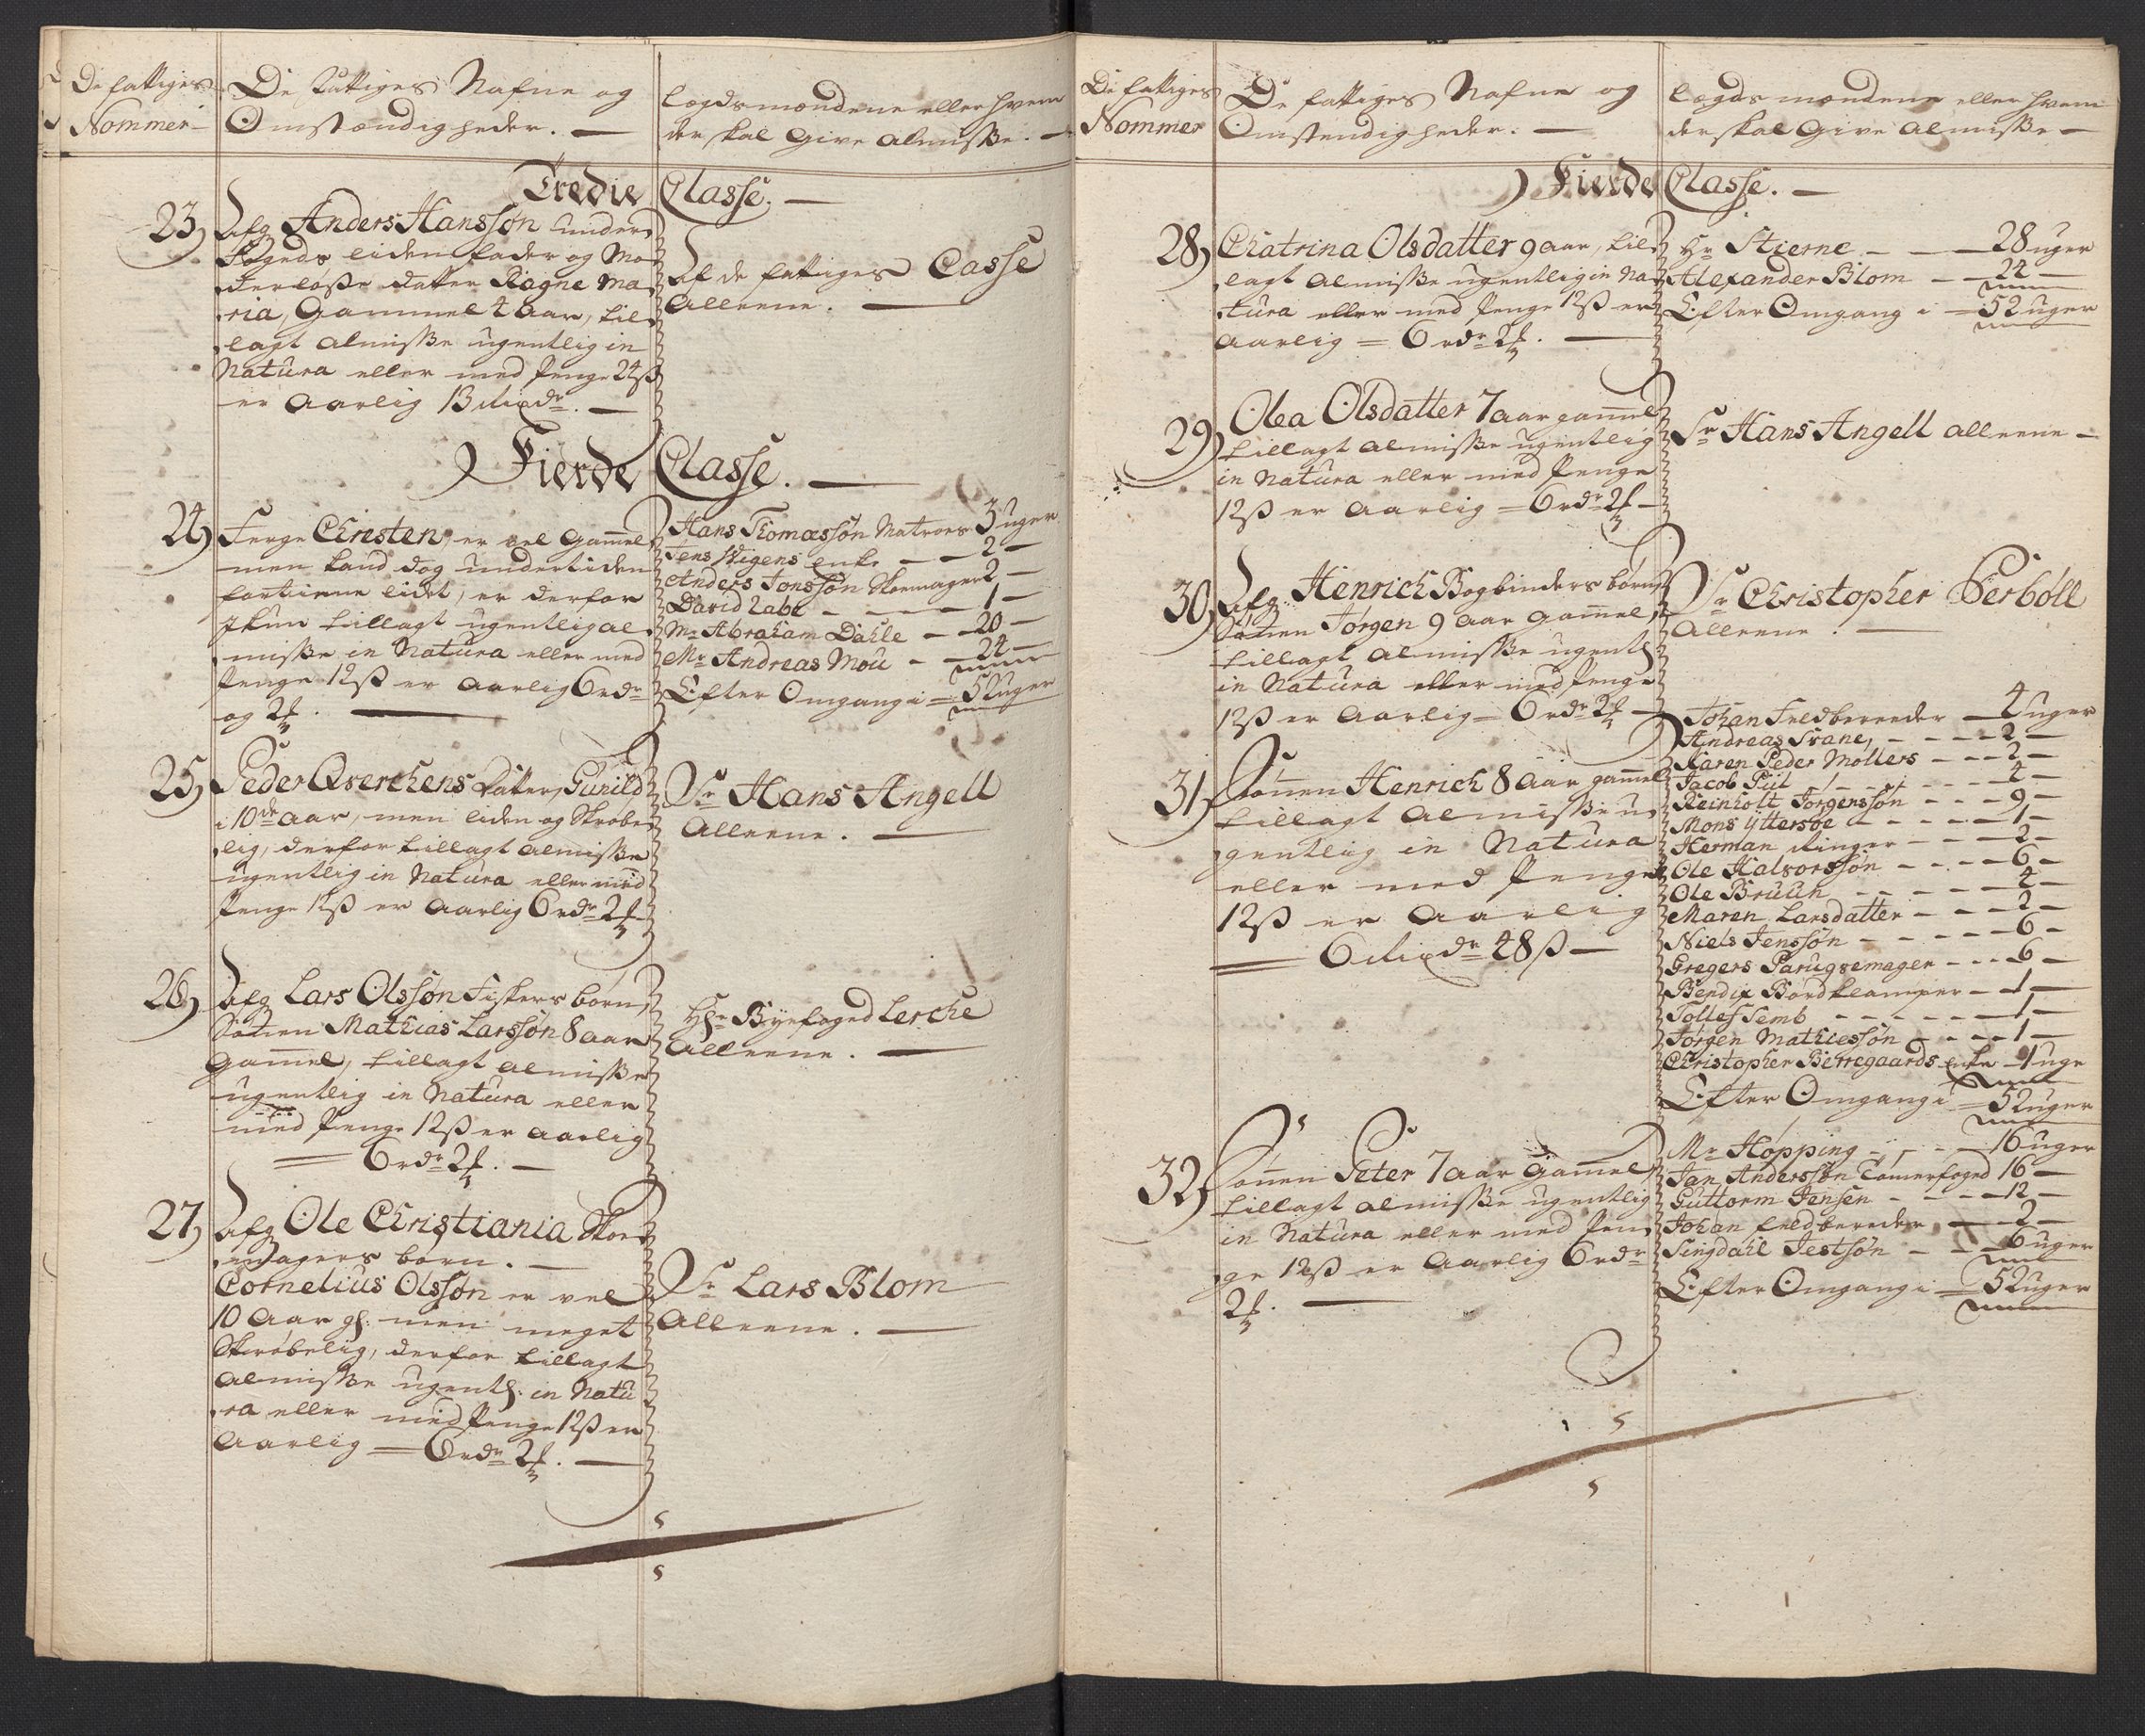 De fattiges
Nommer
De fattiges Nafne og
Omstændigheder.
Lægdsmændene eller hvem
der skal Give Almisse.
Tredie Classe.
23) Afg. Anders Hanssøn under
Fogeds liden fader og Mo
derløsse datter Ragne Ma
ria, Gammel 4 Aar, til
lagt Almisse ugentlig in
Natura eller med Penge 24 ß
er Aarlig 13 Rixdr.
Af de fattiges Casse
Alleene.
Fierde Classe.
24) Terge Christen, er vel Gammel
men kand dog undertiden
fortiene lidt, er derfor
ikun tillagt ugentlig al
misse in Natura eller med
Penge 12 ß er Aarlig 6 rdr
og 2
Hans Thomæssøn Matroes 3 uger
Jens Wigens enke 2
Anders Jonssøn Skoemager 2
David Labe 1
Mr Abraham Dahle 20
Mr Andreas Mou 24
Efter Omgang i 52 uger
25) Peder Qverchens datter, Gunild
i 10de Aar, men liden og Skrøbe
lig, derfor tillagt Almisse
ugentlig in Natura eller med
Penge 12 ß er Aarlig 6 rdr 2
Sr Hans Angell
Alleene.
26) Afg. Lars Olssøn Fiskers børn,
Sønnen Mathias Larssøn 8 aar
Gammel, tillagt Almisse
ugentlig in Natura eller
med Penge 12 ß er Aarlig
6 rdr 2
Hr Byefoged Lerche
Alleene.
27) Afg Ole Christiania Skoe
magers børn.
Cornelius Olssøn er vel
10 Aar gl. men meget
Skrøbelig, derfor tillagt
Almisse ugentl. in Natu
ra eller med Penge 12 ß er
Aarlig 6 rdr 2
Sr Lars Blom
Alleene.
De fattiges
Nommer
De fattiges Nafne og
Omstendigheder.
Lægdsmændene eller hvem
der skal Give Almisse
Fierde Classe.
28) Chatrina Olsdatter 9 aar, til
lagt Almisse ugentlig in Na
tura eller med Penge 12 ß er
Aarlig 6 rdr 2
Hr Stierne 28 uger
Alexander Blom 24
Efter Omgang i 52 uger
29) Olea Olsdatter 7 aar gammel
tillagt Almisse ugentlig
in Natura eller med Penge
12 ß er Aarlig 6 rdr 2
Sr Hans Angell alleene
30) Afg. Henrich Bogbinders børn
Sønnen Jørgen 9 Aar Gammel,
tillagt Almisse ugentl
in Natura eller med Penge
12 ß er Aarlig 6 rdr 2
Sr Christopher Perboll
Alleene.
31) Sønnen Henrich 8 Aar gammel
tillagt Almisse u
gentlig in Natura
eller med Penge
12 ß er Aarlig
6 Rixdr 48 ß
Johan Feldbereder 4 uger
Andreas Svane, 2
Karen Peder Møllers 2
Jacob Piil 4
Reinholt Jørgenssøn 9
Mons Yttersøe 1
Herman Ringer 2
Ole Halvorssøn 6
Ole Bruun 4
Maren Larsdatter 2
Niels Jenssøn 6
Gregers Parugvemager 6
Bendix Bordklamper 1
Tollef Semb 1
Jørgen Mathiessøn 1
Christopher Bierregaards enke 1 uge
Efter Omgang i 52 uger
32) Sønnen Peter 7 aar Gammel,
tillagt Almisse ugentlig
in Natura eller med Pen
ge 12 ß er Aarlig 6 rdr
2
Mr Hopping 16 uger
Jan Anderssøn Tømerfoged 16
Guttorm Jensen 12
Johan feldbereder 2
Singdahl Jestsøn 6 uger
Efter Omgang i 52 uger